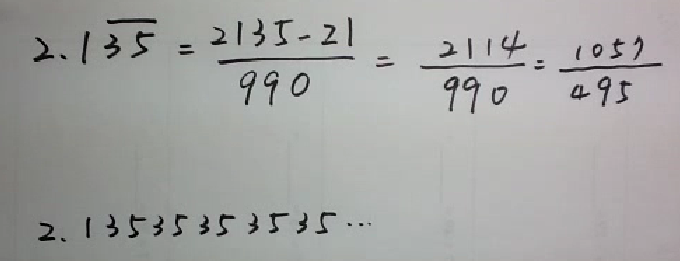 2.1\overline{35} = \frac{2135-21}{990} = \frac{2114}{990} = \frac{1057}{495}
2.13535353535...